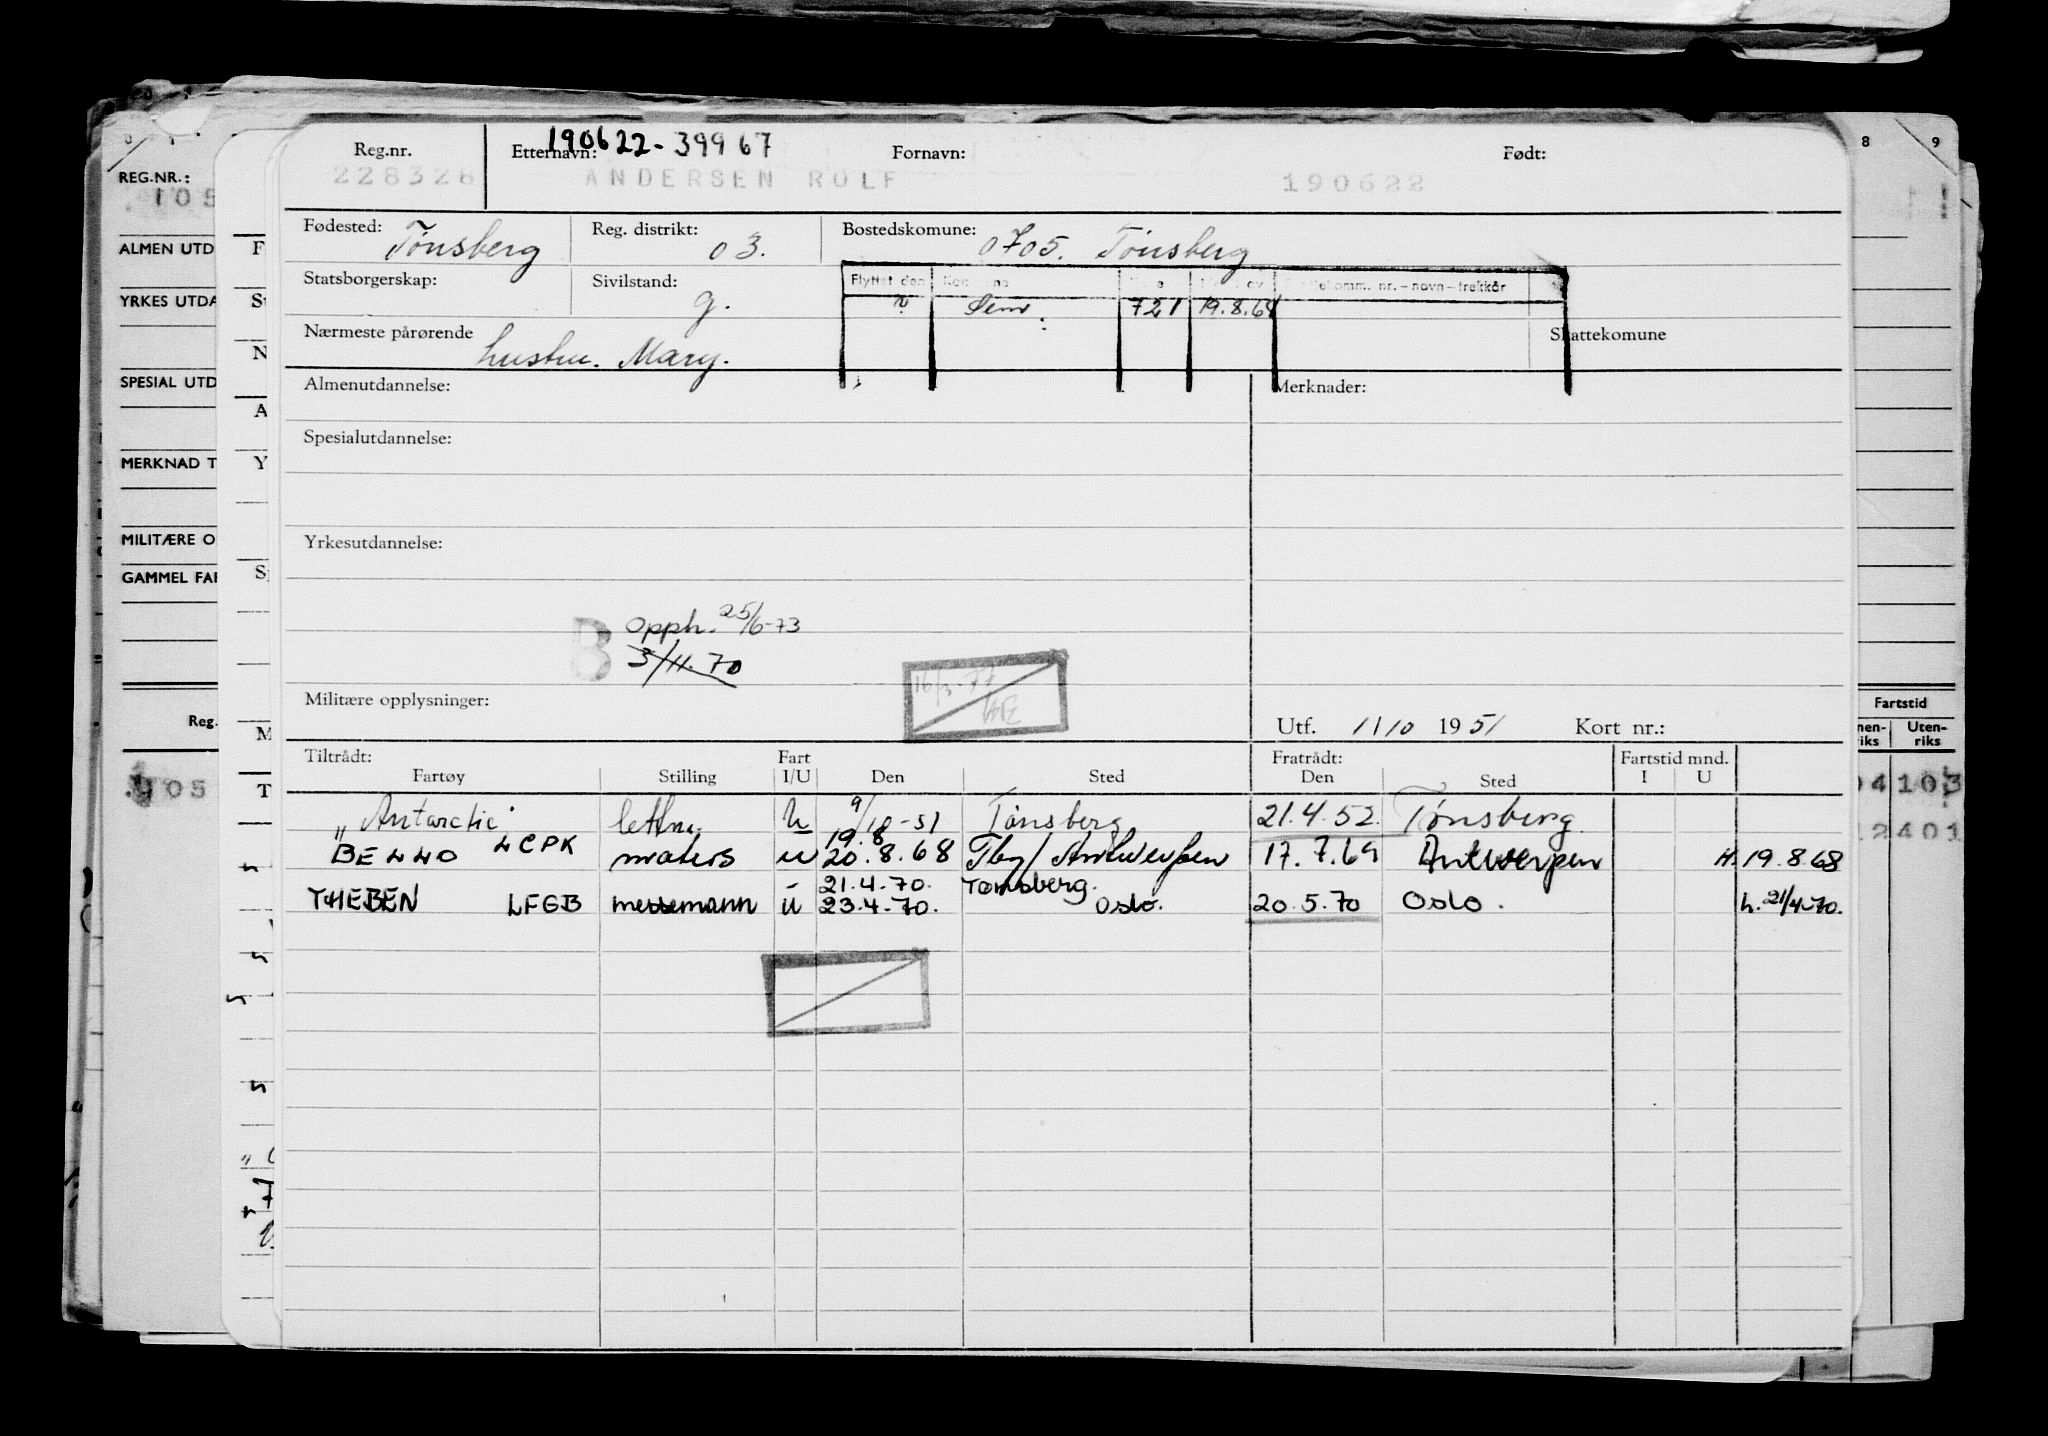 190622-39967
Reg.nr. Etternavn: Fornavn: Født:
228326 ANDERSEN ROLF 190622
Fødested: Tønsberg Reg. distrikt: 03. Bostedskomune: 0705. Tønsberg
Statsborgerskap: Sivilstand: g. Flyttet den nr.-navn-trekkår
Sem 721 19.8.68
Nærmeste pårørende hustru. Mary. Skattekomune
Almenutdannelse: Merknader:
Spesialutdannelse:
Yrkesutdannelse:
B Opph. 25/6-73
3/11.70
16/3-77
Militære opplysninger: Utf. 11/10 1951 Kort nr.:
Tiltrådt: Fart Fratrådt: Fartstid mnd.
Fartøy Stilling I/U Den Sted Den Sted I U
"Antarctic" lettm. U 9/10-51 Tønsberg 21.4.52. Tønsberg.
19.8
BENNO LCPK matros u 20.8.68 Tbg/Antwerpen 17.7.69 Antwerpen H.19.8.68
21.4.70. Tønsberg.
THEBEN LFGB messemann u 23.4.70. Oslo. 20.5.70 Oslo. h. 21/4-70.
REG.NR.:
105
ALMEN UTD
YRKES UTDA
SPESIAL UTD
MERKNAD T
MILITÆRE O
GAMMEL FAR
Reg.
105
F
N
A
Y
M
T
8 9
Fartstid
Uten-
riks
04 103
2401